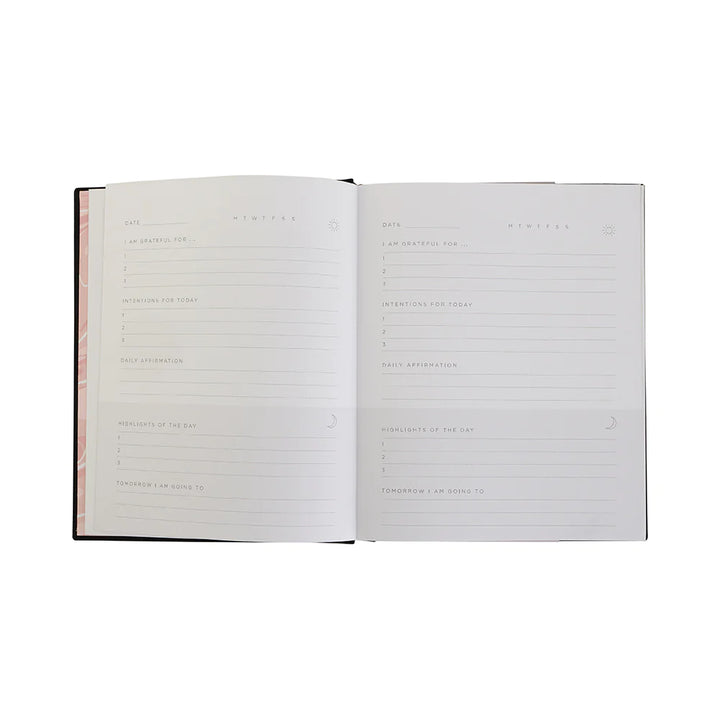 DATE M T W T F S S
I AM GRATEFUL FOR ...
1
2
3
INTENTIONS FOR TODAY
1
2
3
DAILY AFFIRMATION
HIGHLIGHTS OF THE DAY
1
2
3
TOMORROW I AM GOING TO
DATE M T W T F S S
I AM GRATEFUL FOR ...
1
2
3
INTENTIONS FOR TODAY
1
2
3
DAILY AFFIRMATION
HIGHLIGHTS OF THE DAY
1
2
3
TOMORROW I AM GOING TO